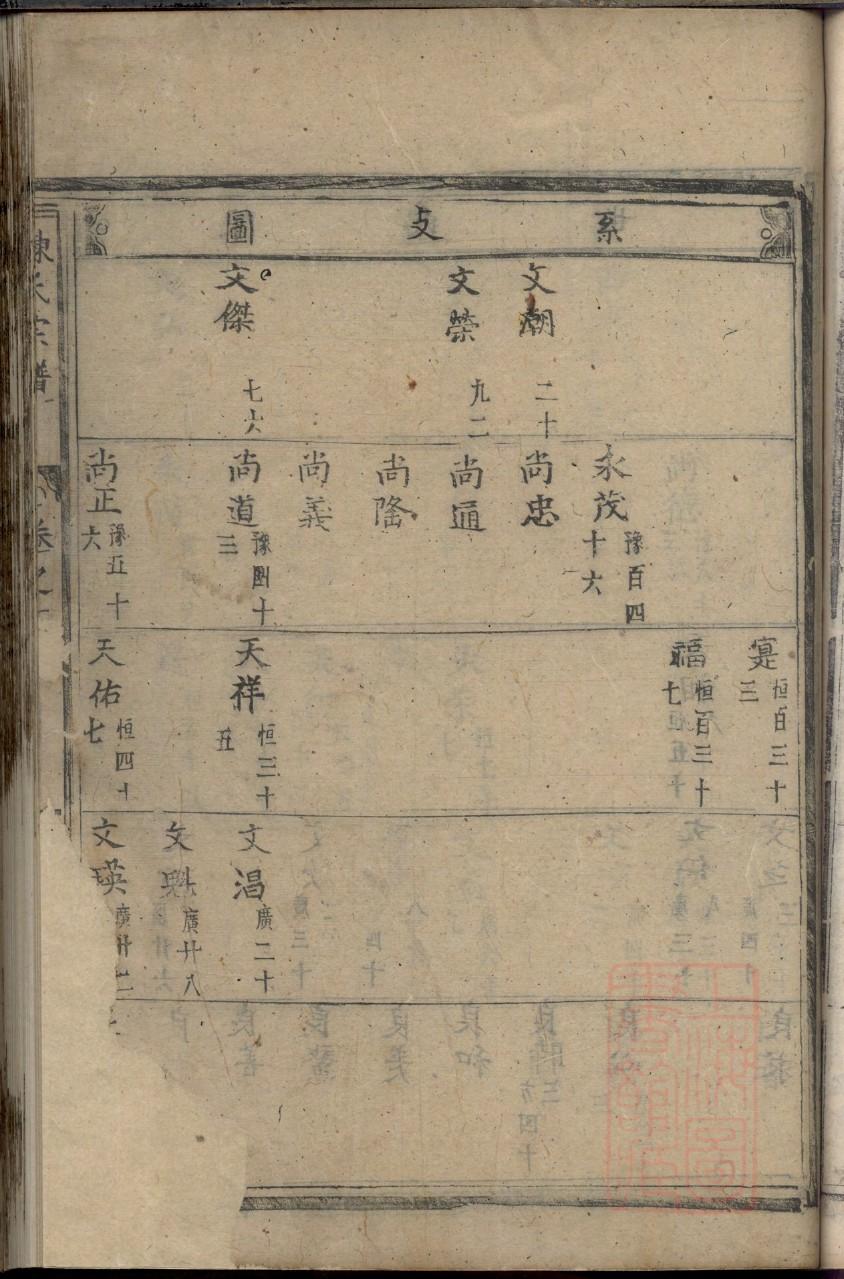 系支圖
文潮 二十
文榮 九二
文傑 七六
永茂 豫百四十六
尚忠
尚通
尚隆
尚義
尚道 豫四十三
尚正 豫五十六
寔 恒百三十三
福 恒百三十七
天祥 恒三十五
天佑 恒四十七
文淐 廣二十
文魁 廣廿八
文瑛 廣廿
宗譜
卷之